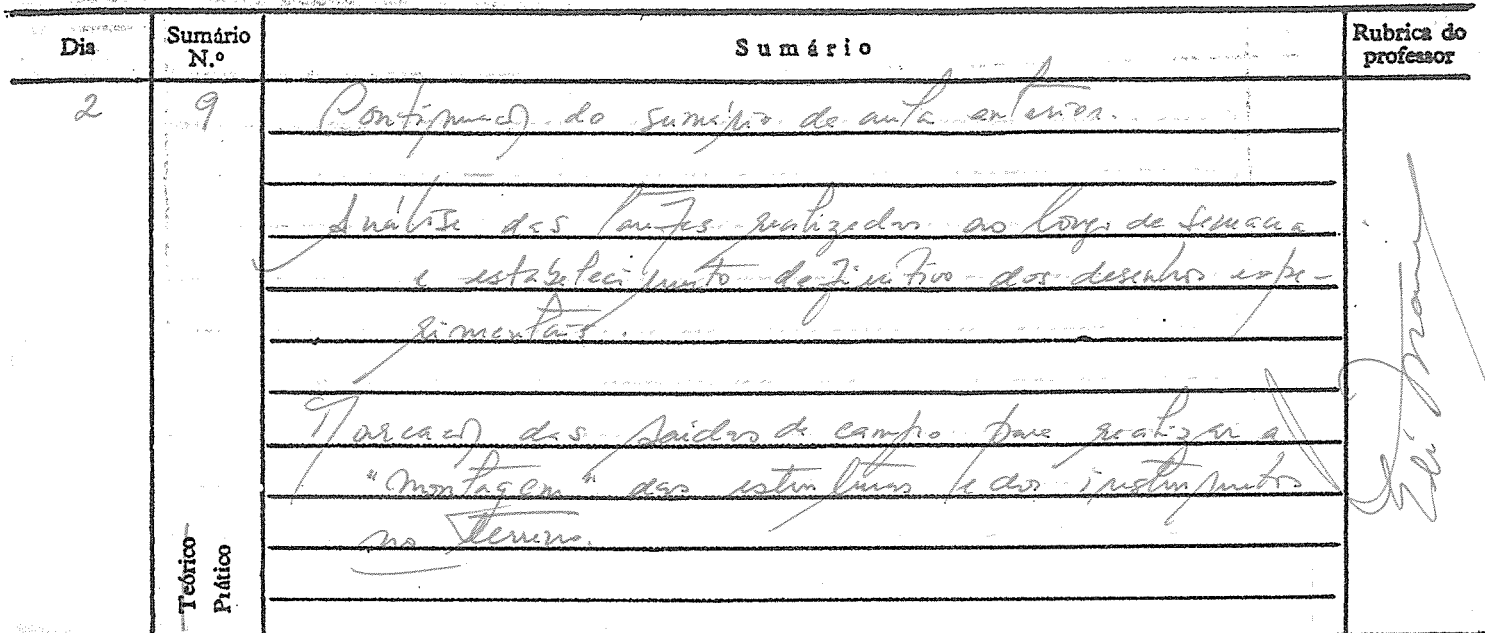 Dia
Sumário N.º
Sumário
Rubrica do professor
2
9
Continuação do sumário de aula anterior.
Análise das tarefas realizadas ao longo de semana
e estabelecimento definitivo dos desenhos expe-
rimentais.
Marcação das saídas de campo para realizar a
"montagem" das estruturas e dos instrumentos
no terreno.
Teórico
Prático